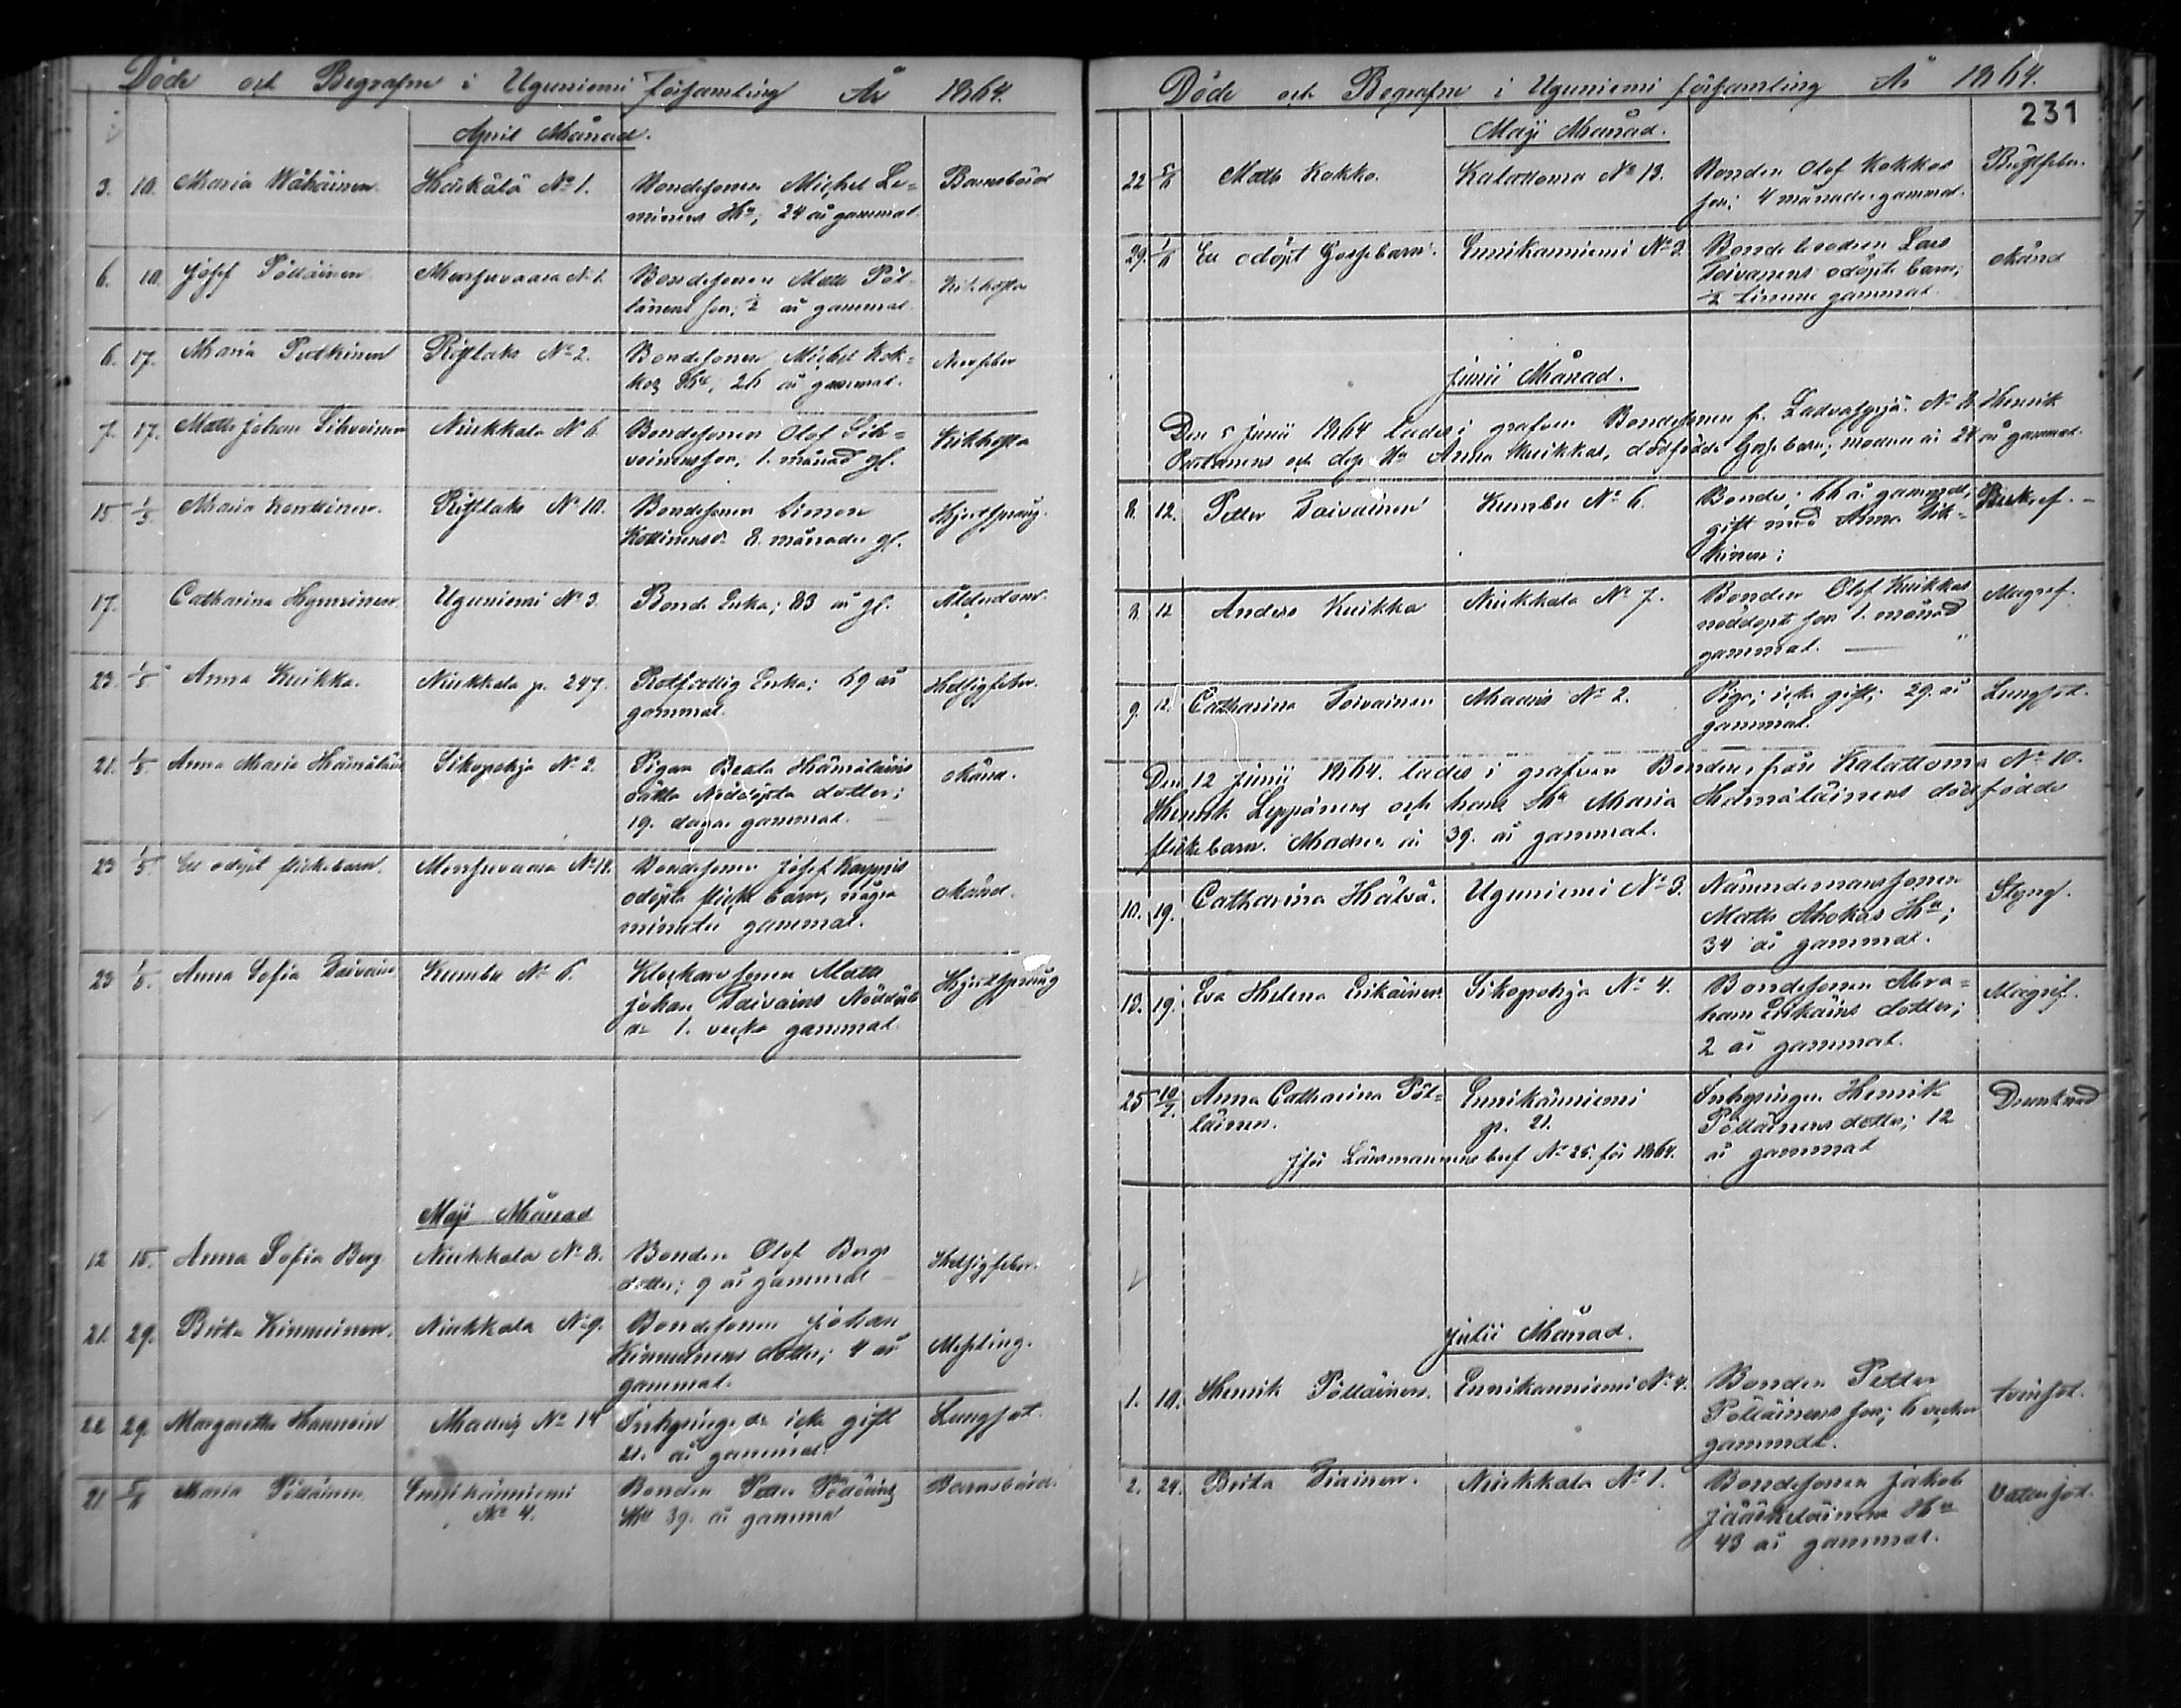 Döde och Begrafne i Uguniemi församling År 1864.
April Månad.
3. 10. Maria Wäkäinen. Härkälä No 1. Bondesonen Michel Le=
minens Hu; 24 år gammal. Barnsbörd
6. 10. Josef Pöllänen Mensuvaara No 1. Bondesonen Matts Pöl=
länens son; ½ år gammal. Kikhosta
6. 17. Maria Putkinen Ristlaks No 2. Bondesonen Michel Kok=
kos Hu; 26 år gammal. Nervfeber
7. 17. Matts Johan Sihvoinen Niukkala No 6 Bondesonen Olof Sih=
voinens son, 1. månad gl. Kikhosta
15 1/5. Maria Konttinen. Ristlaks No 10. Bondesonen Simon
Kottinens dr 8. månader gl. Hjertsprång.
17. Catharina Hyvninen. Uguniemi No 3. Bonde Enka; 83 år gl. Ålderdom.
23. 1/5 Anna Kuikka. Niukkala p. 247. Rotfattig Enka; 69 år
gammal. Hetsigfeber.
21. 1/5. Anna Maria Hämäläin Sikopohja No 2. Pigan Beata Hämäläins
oäkta Nöddöpta dotter;
19. dagar gammal. okänd.
23 1/5 Ett odöpt flickebarn. Mensuvaara No 14. Bondesonen Josef Karppis
odöpta flicke barn, några
minuter gammal. okänd.
23 1/5. Anna Sofia Taivain Kumbu No 6. Klockarsonen Matts
Johan Taivains Nöddöpt
dr 1. vecka gammal. Hjertsprång
Maji Månad
12 15. Anna Sofia Berg Niukkala No 8. Bonden Olof Bergs
dotter; 9 år gammal Hetsigfeber.
21. 29. Brita Kinnuinen. Niukkala No 9. Bondesonen Johan
Kinnuinens dotter; 4 år
gammal. Messling.
22 29. Margaretha Hannoin Maanis No 14 Inhysinge dr icke gift
21. år gammal. Lungsot.
21 5/6 Maria Pöllänen Ennikänniemi
No 4. Bonden Petter Pöllänens
Hu 39. år gammal Barnsbörd.
Döde och Begrafne i Uguniemi församling År 1864.
231
Maji Månad.
22 5/6 Matts Kokko. Kalattoma No 13. Bonden Olof Kokkos
son; 4 månader gammal. Bröstfeber.
29. 1/6 Ett odöpt Gossebarn. Ennikanniemi No 3. Bonde brodren Lars
Toivanens odöpte barn;
½ timme gammal. okänd
Junii Månad.
Den 5 Junii 1864 lades i grafven Bondesonen fr. Ladvasyrjä No 8. Henrik
och dess Hu Anna Kuikkas, dödfödde Gossebarn; modren är 24 år gammal.
8. 12. Petter Taivainen Kumbu No 6. Bonde; 66 år gammal,
gift med Anna
kinen;
8. 12 Anders Kuikka Niukkala No 7. Bonden Olof Kuikkas
nöddöpte son 1. månad
gammal. Magref.
9. 12. Catharina Toivainen Maanis No 2. Piga; icke gift; 29. år
gammal. Lungsot.
Den 12 Junii 1864. lades i grafven Bondens från Kalattoma No 10.
Henrik Leppänens och hans Hu Maria Hämäläinens dödfödde
flickebarn. Modren är 39. år gammal.
10. 19. Catharina Hälvä. Uguniemi No 3. Nämndemanssonen
Matts Ahokas Hu;
34 år gammal. Styng.
13. 19. Eva Helena Erikäinen Sikopohja No 4. Bondesonen Abra=
ham Erikäins dotter;
2 år gammal. Magref.
25 10/7. Anna Catharina Pöl=
läinen. Ennikänniemi
p. 21. Inhysingen Henrik
Pölläinens dotter; 12
år gammal Drunknad
jför Länsmannens bref No 25. för 1864.
Julii Månad.
1. 10. Henrik Pölläinen. Ennikanniemi No 4. Bonden Petter
Pölläinens son; 6 veckor
gammal. tvinsot.
2. 24. Brita Tiainen. Niukkala No 1. Bondesonen Jakob
Jääskeläinens Hu
43 år gammal. Vattusot.